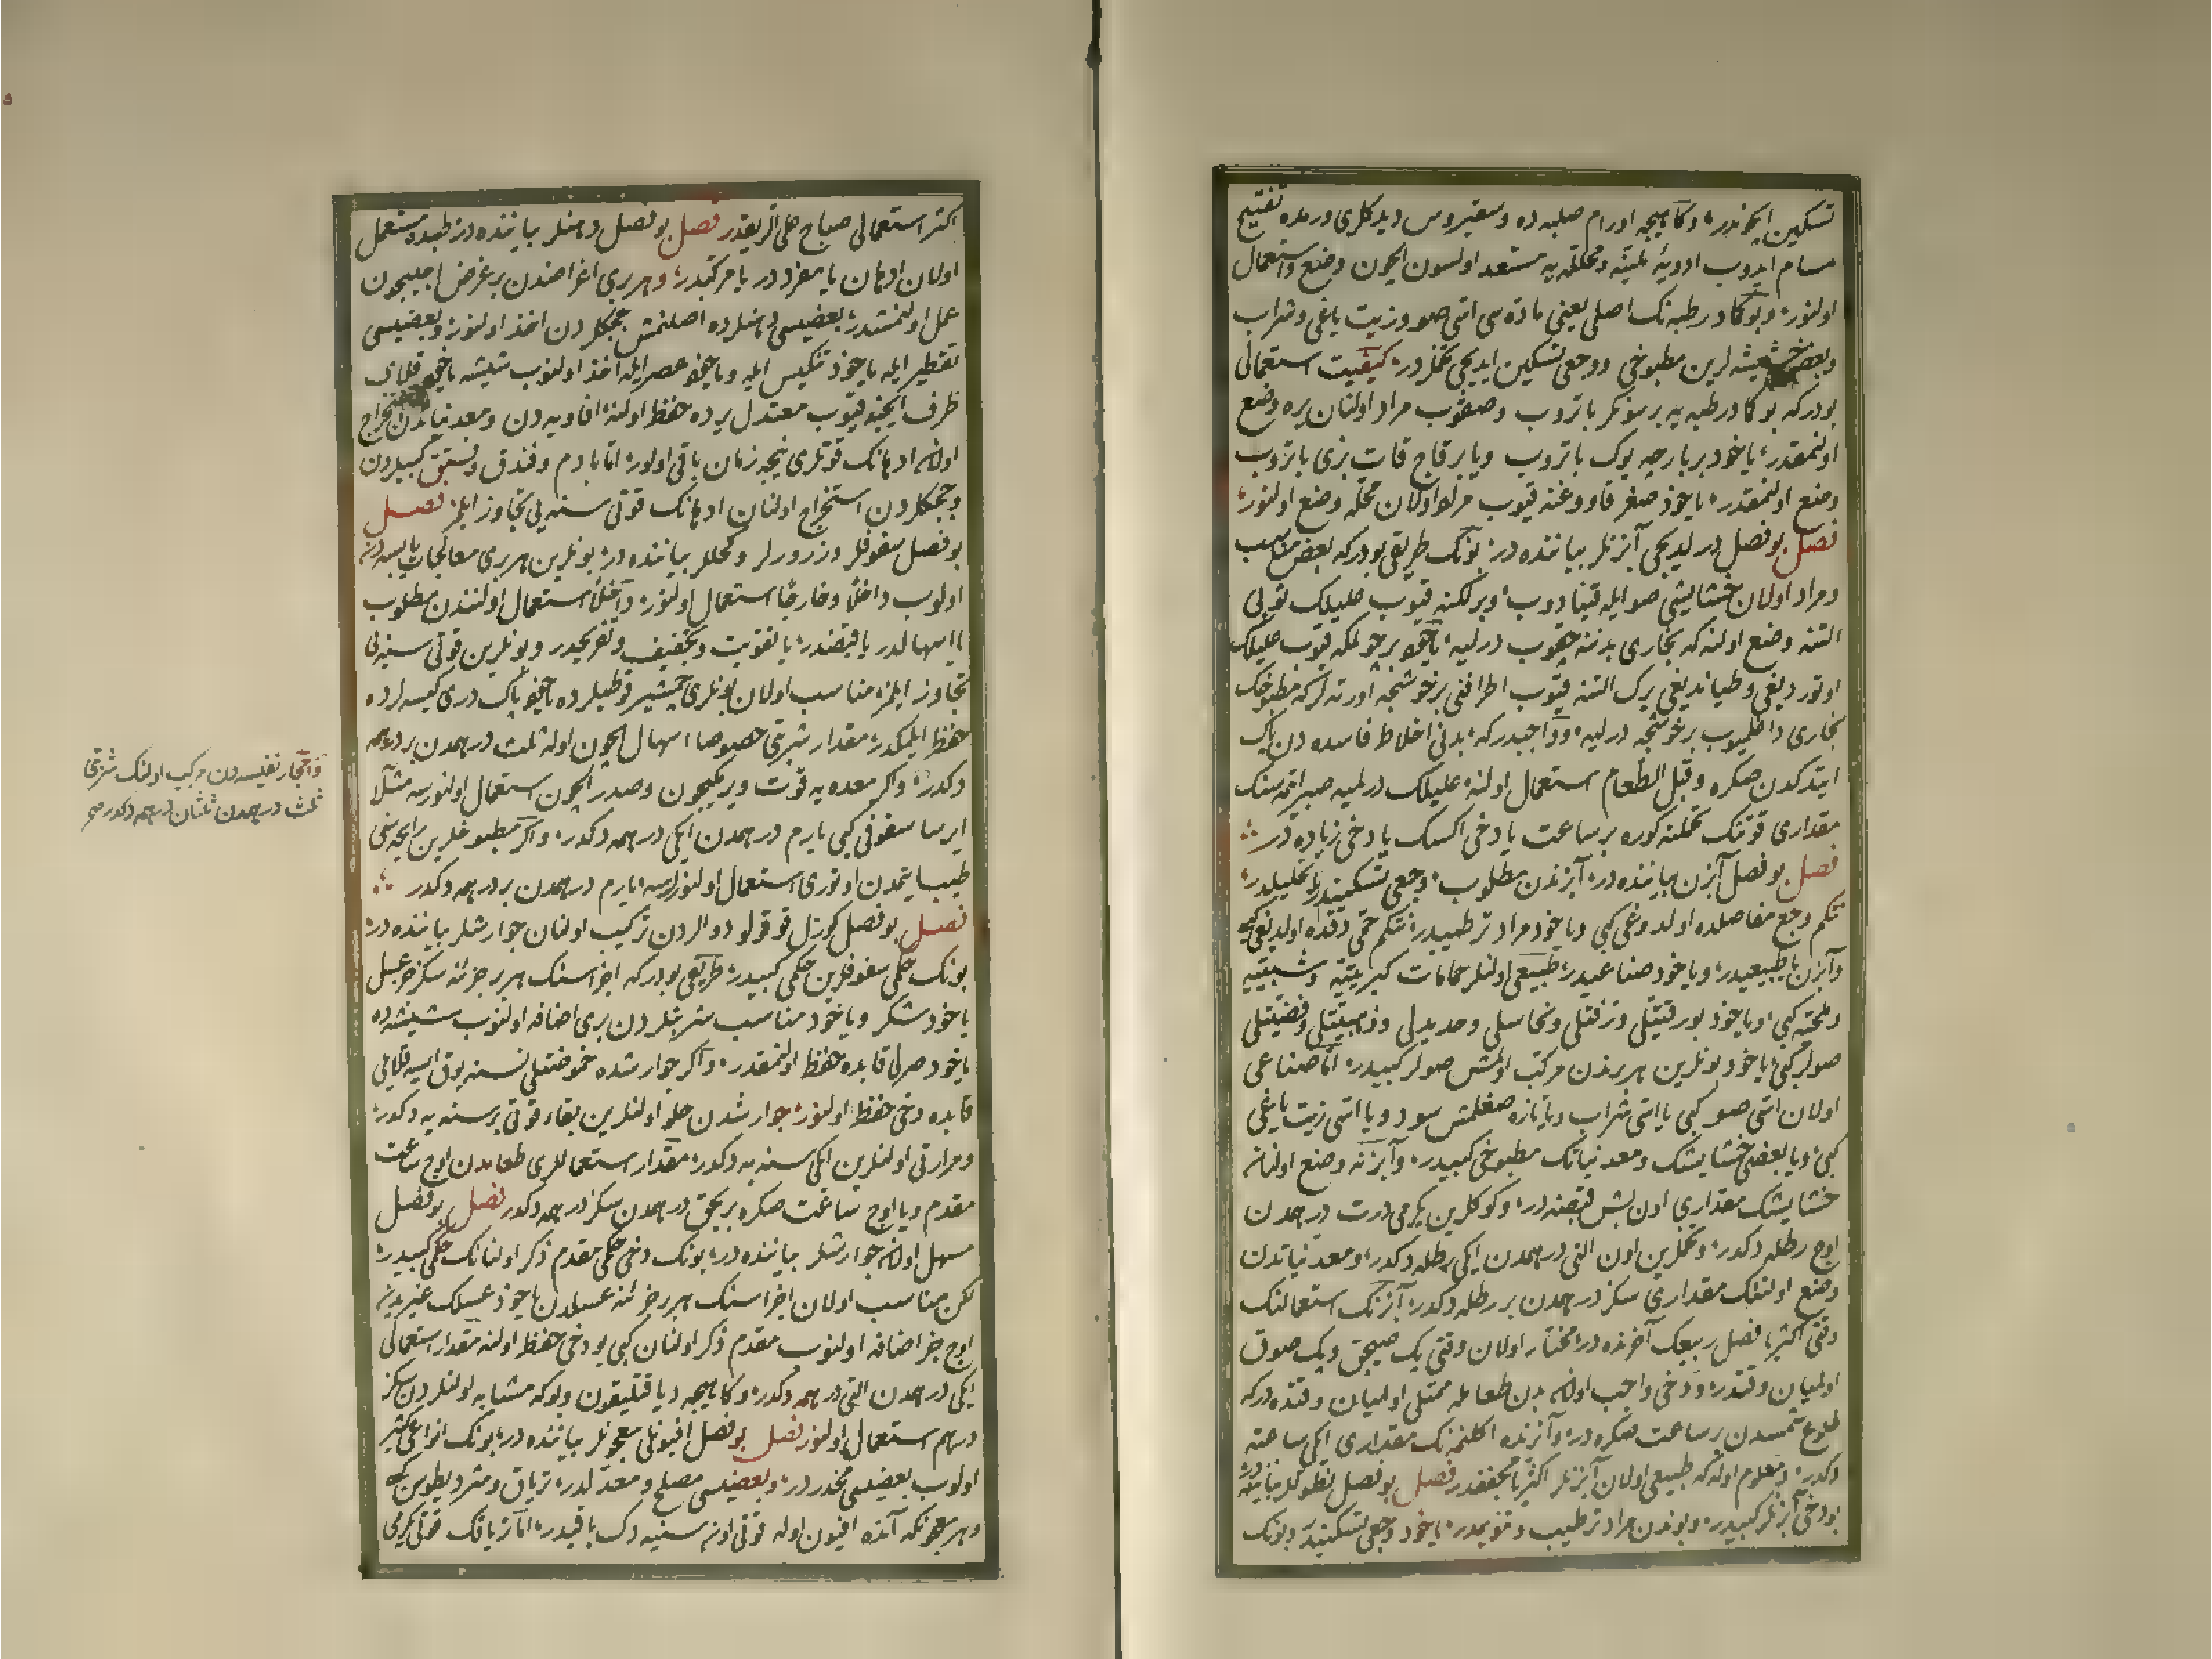 تسكين ايچوندر وكاهيجه اورام صلبه ده وسقيروس ديدكلری ورمده تفتيح
مسام ايدوب ادويۀ ملينه ومحلله يه مستعد اولسون ايچون وضع واستعمال
اولنور وبو كماد رطبه نك اصلی يعنی ماده سی اتی صو وزيت ياغی وشراب
وبعض حشيشه لرين مطبوخی ووجعی تسكين ايديجی تخمدر كيفيت استعمالی
بودركه بو كماد رطبه يه بر سونكر باتروب وصقوب مراد اولنان يره وضع
اولنمقدر ياخود بر پارچه يوك باتروب ويا بر قاچ قات بزی باتروب
وضع اولنمقدر ياخود صغر قاووغنه قيوب مراد اولان محله وضع اولنور
فصل بو فصل درلديجی آبزنلر بياننده در بونك طريقی بودركه بعض مناسب
ومراد اولان خشايشی صو ايله قينادوب وبر لكنه قيوب عليلك ثوبی
التنه وضع اولنه كه بخاری بدننه چقوب درليه ياخود بر چولمكه قيوب عليلك
اوتورديغی وطياندیغی يرك التنه قيوب اطرافنی بر خوشجه اورته لركه مطبوخك
بخاری داغليوب بر خوشجه درليه وواجبدركه بدنی اخلاط فاسده دن پاك
ايتدكدن صكره وقبل الطعام استعمال اولنه عليلك درلميه صبر ايتمه سنك
مقداری قوتنك تحملنه كوره بر ساعت يا دخی اكسك يا دخی زياده در
فصل بو فصل آبزن بياننده در آبزندن مطلوب وجعی تسكيندر يا تحليلدر
نتكم وجع مفاصلده اولدوغی كبی وياخود مراد ترطيبدر نتكم حمی دقده اولديغی كبی
وآبزن يا طبيعيدر وياخود صناعيدر طبيعی اولنلر حمامات كبريتيه وشبيه
وملحيه كبی وياخود بورقيتلی وزفتلی ونحاسلی وحديدلی وذهبيتلی وفضيتلی
صولر كبی ياخود بونلرين هر برندن مركب اولمش صولر كبيدر اما صناعی
اولان اتی صو كبی يا اتی شراب ويا تازه صغلمش سود ويا اتی زيت ياغی
كبی ويا بعض خشايشك ومعدنياتك مطبوخی كبيدر وآبزنه وضع اولنان
خشايشك مقداری اون بش قبضه در وكوكلرين يكرمی درت درهمدن
اوچ رطله دكدر وتخملرين اون التی درهمدن ايكی رطله دكدر ومعدنياتدن
وضع اولننك مقداری سكز درهمدن بر رطله دكدر آبزنك استعمالنك
وقتی اكثريا فصل ربيعك آخرنده در مختار اولان وقتی پك صيجق وپك صوق
اولميان وقتدر ودخی واجب اولان بدن طعامله ممتلی اولميان وقتده دركه
طلوع شمسدن بر ساعت صكره در وآبزنده اكلنمه نك مقداری ايكی ساعته
دكدر ومعلوم اوله كه طبيعی اولان آبزنلر اكثريا مجففدر فصل بو فصل نطوللر بياننده در
بو دخی آبزنلر كبيدر وبوندن مراد ترطيب وتنويمدر ياخود وجعی تسكيندر وبونك
اكثر استعمالی صباح علی الريقدر فصل بو فصل دهنلر بياننده در طبده مستعمل
اولان ادهان يا مفرددر يا مركبدر وهر بری اغراضدن بر غرض اجليچون
عمل اولنمشدر بعضيسی دهنلرده اصلنمش چچكلردن اخذ اولنور وبعضيسی
تقطير ايله ياخود تنكيس ايله وياخود عصر ايله اخذ اولنوب شيشه ياخود قلای
ظرف ايچنه قيوب معتدل يرده حفظ اولنه افاويه دن ومعدنياتدن استخراج
اولان ادهانك قوتلری نيجه زمان باقی اولور اما بادم وفندق وفستق كبيلردن
وچچكلردن استخراج اولنان ادهانك قوتی سنه يی تجاوز ايلمز فصل
بو فصل سفوفلر وزرورلر وكحللر بياننده در بونلرين هر بری معالجات يابسه دن
اولوب داخلًا وخارجًا استعمال اولنور داخلًا استعمال اولنندن مطلوب
يا اسهالدر يا قبضدر يا تقويت وتجفيف وتفريحدر وبونلرين قوتی سنه يی
تجاوز ايلمز مناسب اولان بونلری قوطيلرده ياخود پاك دری كيسه لرده
حفظ ايلمكدر مقدار شربتی خصوصا اسهال ايچون اوله ثلث درهمدن بر درهمه
دكدر واكر معده يه قوت ويرمكيچون وصدر ايچون استعمال اولنورسه مثلا
ايرسا سفوفی كبی يارم درهمدن ايكی درهمه دكدر واكر مطبوخلرين رايحه سنی
طيب ايتمدن اوتوری استعمال اولنورسه يارم درهمدن بر درهمه دكدر
فصل بو فصل كوزل قوقولو دوالردن تركيب اولنان جوارشلر بياننده در
بونك حكمی سفوفلرين حكمی كبيدر طريقی بودركه اجزاسنك هر بر جزئنه سكز جزء عسل
ياخود شكر وياخود مناسب شربتلردن بری اضافه اولنوب شيشه ده
ياخود صرلی قابده حفظ اولنمقدر واكر جوارشده حموضتلی نسنه يوق ايسه قلايلی
قابده دخی حفظ اولنور جوارشدن حلو اولنلرين بقاء قوتی بر سنه يه دكدر
ومرارتی اولنلرين ايكی سنه يه دكدر مقدار استعماللری طعامدن اوچ ساعت
مقدم ويا اوچ ساعت صكره بر بچق درهمدن سكز درهمه دكدر فصل بو فصل
مسهل اولان جوارشلر بياننده در بونك دخی حكمی مقدم ذكر اولنانك حكمی كبيدر
لكن مناسب اولان اجزاسنك هر بر جزئنه عسلدن ياخود عسلك غيريدن
اوچ جزء اضافه اولنوب مقدم ذكر اولنان كبی بو دخی حفظ اولنه مقدار استعمالی
ايكی درهمدن التی درهمه دكدر وكاهيجه ديافنيقون وبوكه مشابه اولنلردن سكز
درهم استعمال اولنور فصل بو فصل افيونلی معجونلر بياننده در بونك انواعی كثير
اولوب بعضيسی مخدردر وبعضيسی مصلح ومعدلدر ترياق ومثرديطوس كبی
وهر معجونكه آنده افيون اوله قوتی اون سنيه دك باقيدر اما ترياقك قوتی يكرمی
واحجار نفيسه دن مركب اولنك شربتی
ثلث درهمدن ثلثان درهمه دكدر صح